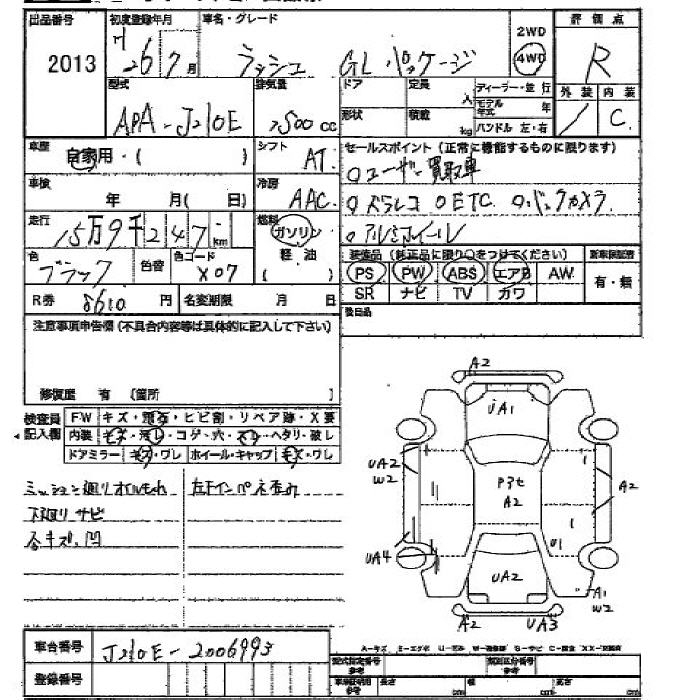 出品番号 初度登録年月 車名・グレード 2WD 評価点
2013 H 26 7月 ラッシュ GL パッケージ 4WD R
型式 排気量 ドア 定員 人 ディーラー・並行 外装 内装
モデル年式 年
APA-J210E 1500cc 形状 積載 kg ハンドル 左・右 / C
車歴 自家用・( ) シフト AT セールスポイント(正常に機能するものに限ります)
○ユーザー買取車
車検 年 月( 日) 冷房 AAC ○ドラレコ ○ETC ○バックカメラ
走行 15万9千247km 燃料 ガソリン ○アルミホイール
軽油 ( ) 装備品(純正品に限り○をつけてください) 新車保証書
色 ブラック 色替 色コード X07 PS PW ABS エアB AW 有・無
R券 8610円 名変期限 月 日 SR ナビ TV カワ
注意事項申告欄(不具合内容等は具体的に記入して下さい) 後日品
修復歴 有 〔箇所 〕
検査員記入欄 FW キズ・飛石・ヒビ割・リペア跡・X要
内装 キズ・汚レ・コゲ・穴・スレ・ヘタリ・破レ
ドアミラー キズ・ワレ ホイール・キャップ キズ・ワレ
ミッション廻りオイルもれ 左下インパネ歪み
下廻りサビ
各キズ、凹
A2
UA1
UA2
W2
Pアセ
A2
A2
UA4
U1
UA2
A1
W2
A2 UA3
車台番号 J210E-2006993
登録番号
型式指定番号 参考 類別区分番号 参考
車検証明用 参考 長さ cm 幅 cm 高さ cm